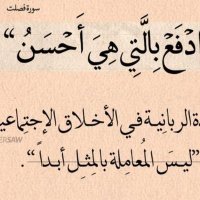 سورة فصلت
ادْفَعْ بِالَّتِي هِيَ أَحْسَنُ “
ة الربانية في الأخلاق الإجتماعي
”ليسَ المُعاملة بالمِثل أبداً “.